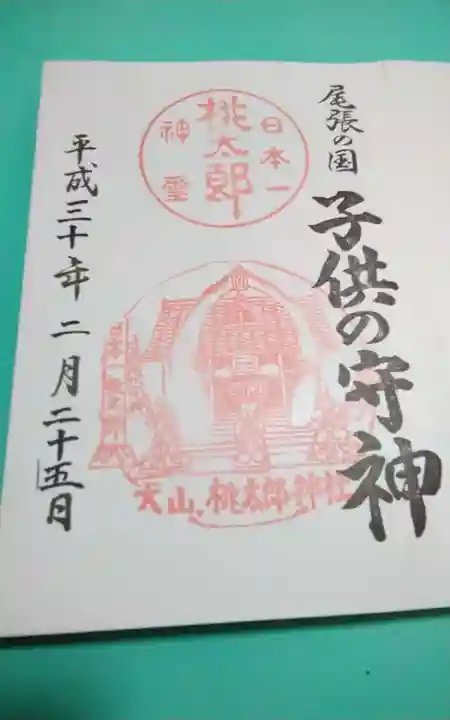 尾張の国
子供の守神
日本一
桃太郎
神霊
犬山.桃太郎神社
平成三十年二月二十五日